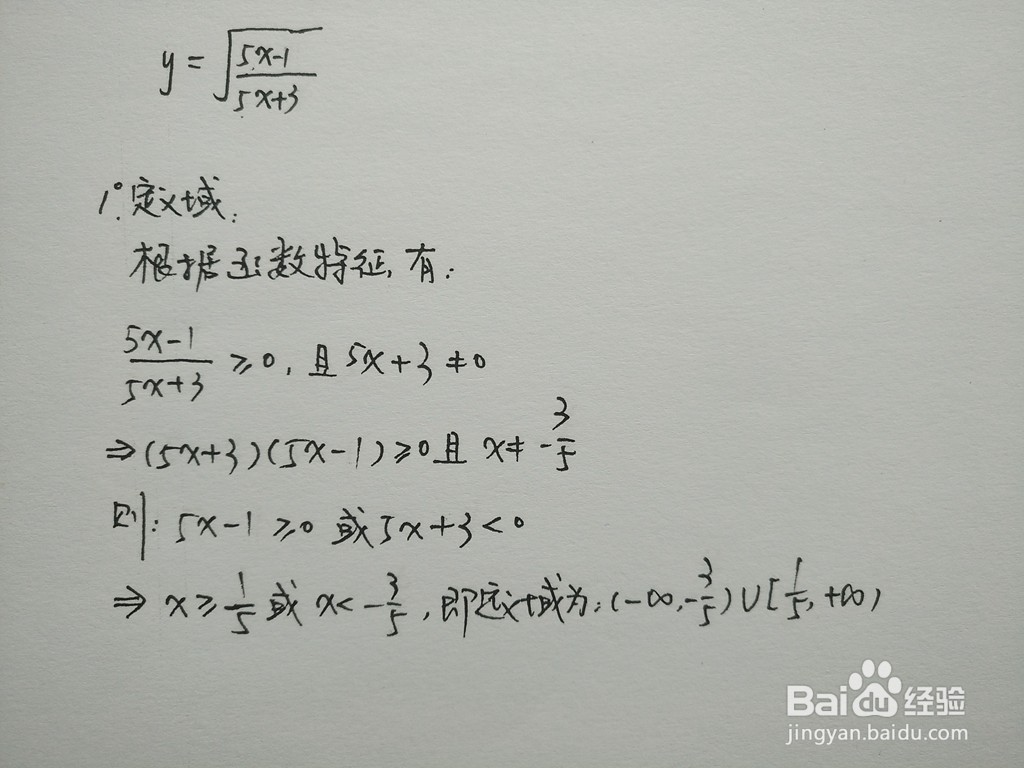 y = √((5x-1)/(5x+3))
1°. 定义域:
根据函数特征, 有:
(5x-1)/(5x+3) ≥ 0, 且 5x+3 ≠ 0
⇒ (5x+3)(5x-1) ≥ 0 且 x ≠ -3/5
则: 5x-1 ≥ 0 或 5x+3 < 0
⇒ x ≥ 1/5 或 x < -3/5, 即定义域为: (-∞, -3/5) ∪ [1/5, +∞)
Baidu经验
jingyan.baidu.com